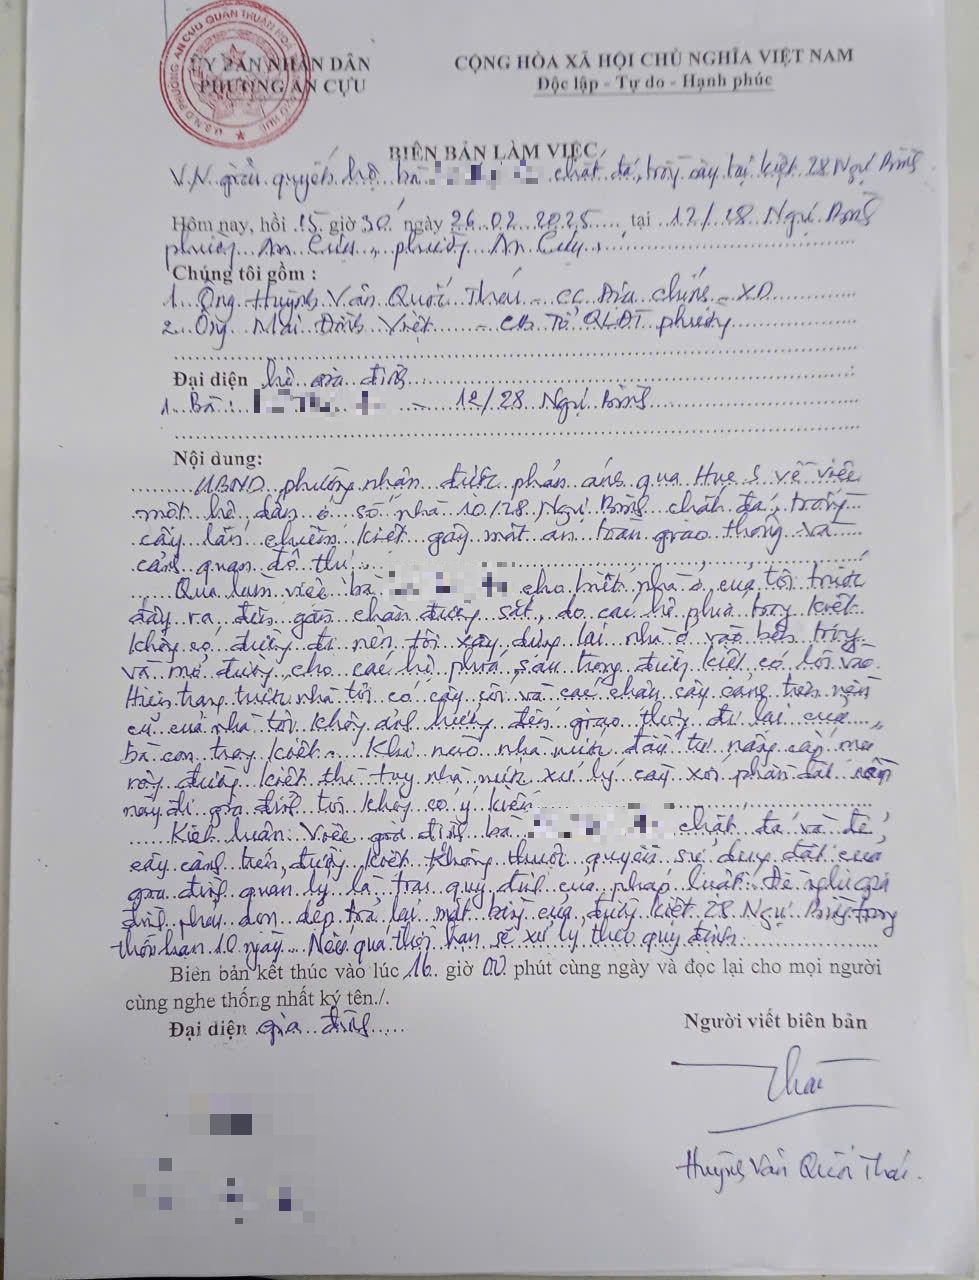 ỦY BAN NHÂN DÂN
PHƯỜNG AN CỰU
CỘNG HÒA XÃ HỘI CHỦ NGHĨA VIỆT NAM
Độc lập - Tự do - Hạnh phúc
BIÊN BẢN LÀM VIỆC
V.v giải quyết hộ bà chất đá, trồng cây tại kiệt 28 Ngự Bình
Hôm nay, hồi 15 giờ 30 ngày 26.02.2025 tại 12/28 Ngự Bình
phường An Cựu, phường An Cựu.
Chúng tôi gồm :
1. Ông Huỳnh Văn Quốc Thái - CC Địa chính - XD
2. Ông Mai Đình Việt - CB Tổ QLĐT phường
Đại diện hộ gia đình
1. Bà : - 12/28 Ngự Bình
Nội dung:
UBND phường nhận được phản ánh qua Hue S về việc
một hộ dân ở số nhà 10/28 Ngự Bình chất đá, trồng
cây lấn chiếm kiệt gây mất an toàn giao thông và
cảnh quan đô thị.
Qua làm việc bà cho biết nhà ở của tôi trước
đây ra đến gần chân đường sắt, do các hộ phía trong kiệt
không có đường đi nên tôi xây dựng lại nhà ở vào bên trong
và mở đường cho các hộ phía sau trong đường kiệt có lối vào
Hiện trạng trước nhà tôi có cây và các chậu cây cảnh trên nền
cũ của nhà tôi không ảnh hưởng đến giao thông đi lại của
bà con trong kiệt. Khi nào nhà nước đầu tư nâng cấp mở
rộng đường kiệt thì tùy nhà nước xử lý cây phần đất nền
này đi gia đình tôi không có ý kiến
Kết luận: Việc gia đình bà chất đá và để
cây cảnh trên đường kiệt không thuộc quyền sử dụng đất của
gia đình quản lý là trái quy định của pháp luật. Đề nghị gia
đình phải dọn dẹp trả lại mặt bằng của đường kiệt 28 Ngự Bình trong
thời hạn 10 ngày. Nếu quá thời hạn sẽ xử lý theo quy định
Biên bản kết thúc vào lúc 16 giờ 00 phút cùng ngày và đọc lại cho mọi người
cùng nghe thống nhất ký tên./.
Đại diện gia đình
Người viết biên bản
Thái
Huỳnh Văn Quốc Thái.